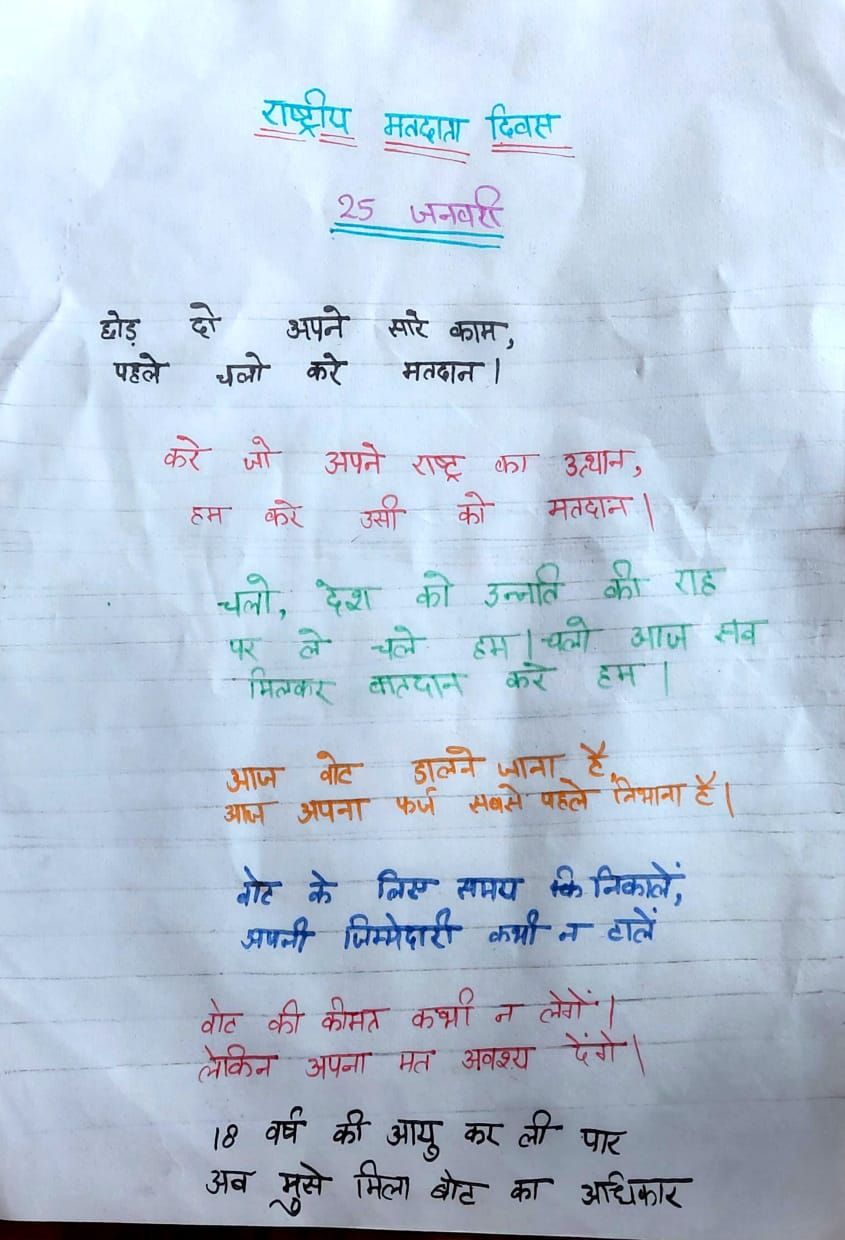 राष्ट्रीय मतदाता दिवस
25 जनवरी
छोड़ दो अपने सारे काम,
पहले चलो करे मतदान।
करे जो अपने राष्ट्र का उत्थान,
हम करे उसी को मतदान।
चलो, देश को उन्नति की राह
पर ले चले हम। चलो आज सब
मिलकर मतदान करे हम।
आज वोट डालने जाना है,
आज अपना फर्ज सबसे पहले निभाना है।
वोट के लिए समय निकालें,
अपनी जिम्मेदारी कभी न टालें
वोट की कीमत कभी न लेगें।
लेकिन अपना मत अवश्य देंगे।
18 वर्ष की आयु कर ली पार
अब मुसे मिला बोट का अधिकार